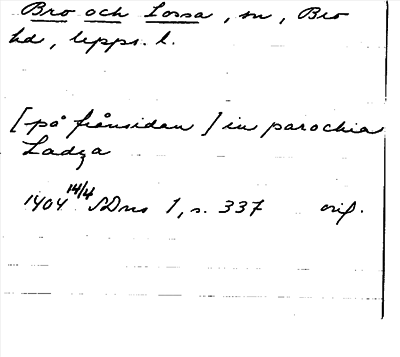 Bro och Lossa, sn, Bro
hd, Upps. l.
[på frånsidan] in parochia
Ladza
1404 14/4 SDns 1, s. 337 orig.